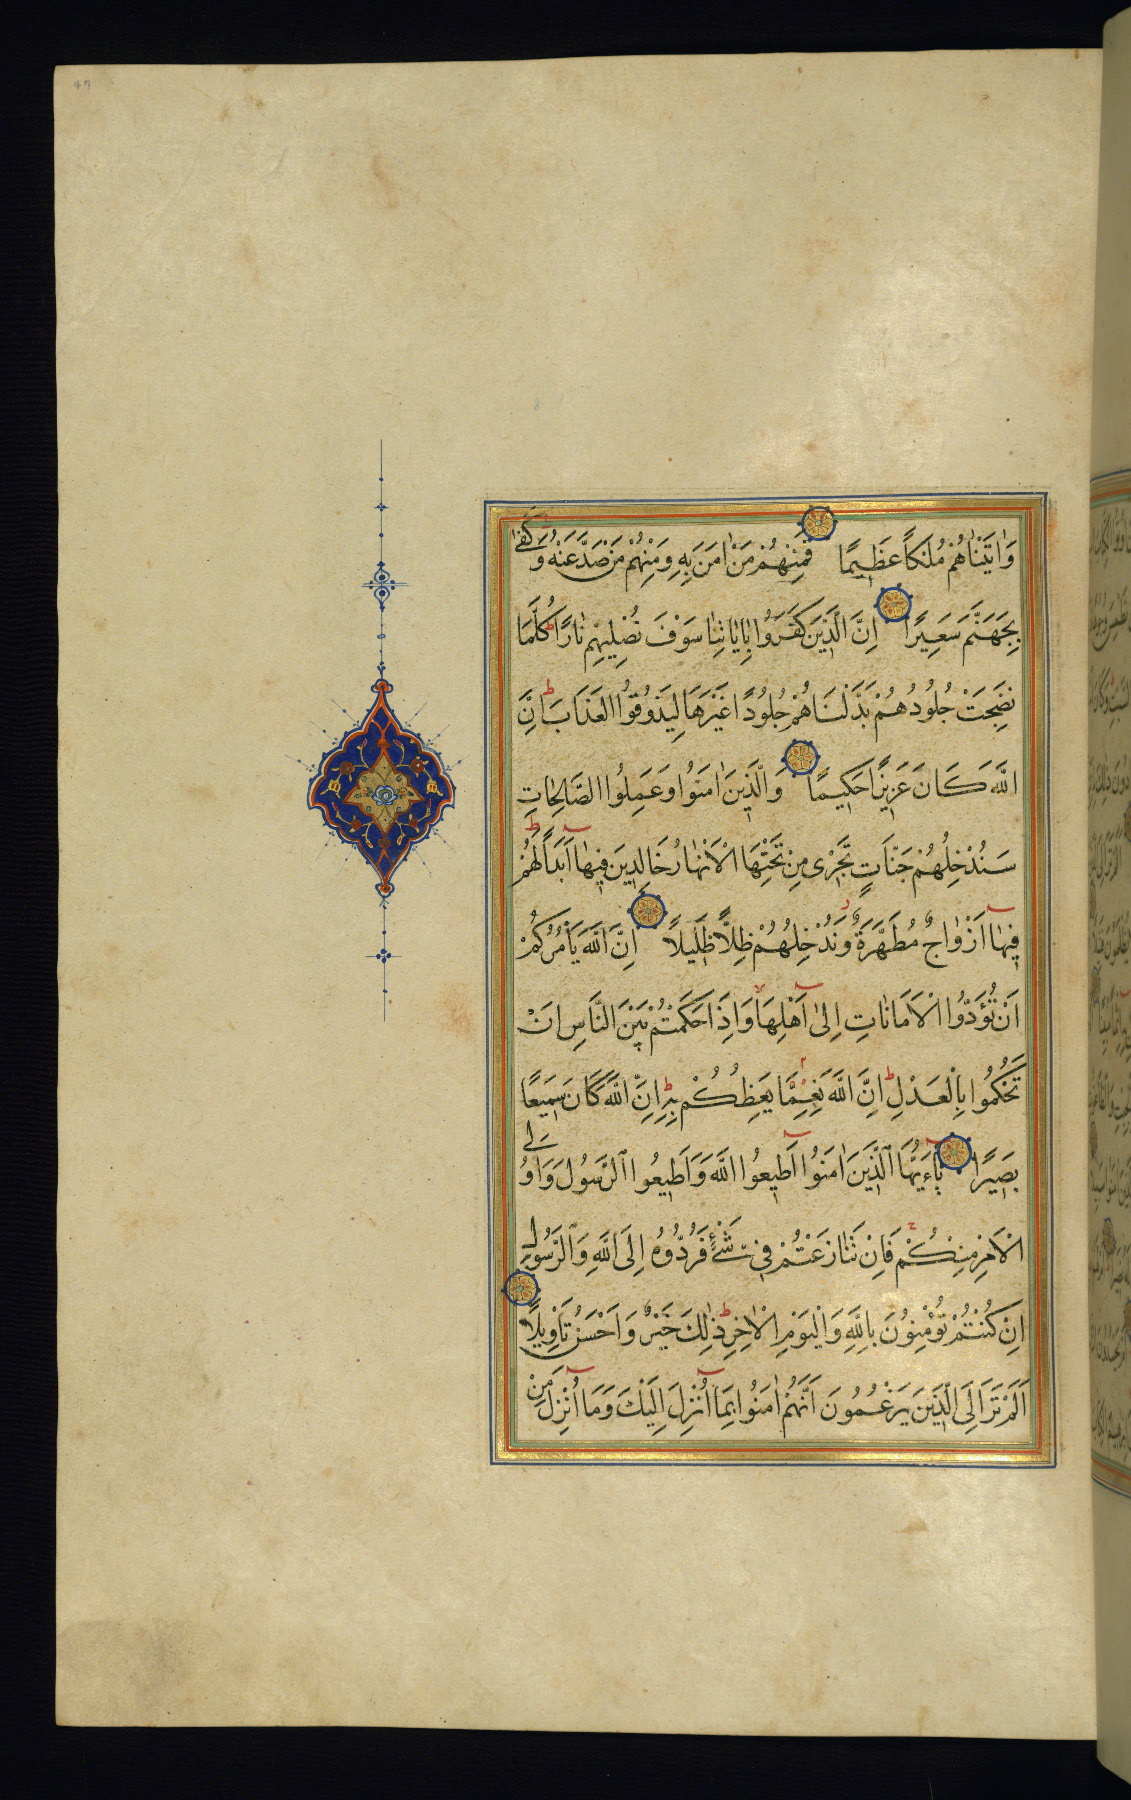 47
وَاٰتَيْنَاهُمْ مُلْكًا عَظِيمًا فَمِنْهُمْ مَنْ اٰمَنَ بِهِ وَمِنْهُمْ مَنْ صَدَّ عَنْهُ وَكَفٰى
بِجَهَنَّمَ سَعِيرًا اِنَّ الَّذِينَ كَفَرُوا بِاٰيَاتِنَا سَوْفَ نُصْلِيهِمْ نَارًا كُلَّمَا
نَضِجَتْ جُلُودُهُمْ بَدَّلْنَاهُمْ جُلُودًا غَيْرَهَا لِيَذُوقُوا الْعَذَابَ اِنَّ
اللّٰهَ كَانَ عَزِيزًا حَكِيمًا وَالَّذِينَ اٰمَنُوا وَعَمِلُوا الصَّالِحَاتِ
سَنُدْخِلُهُمْ جَنَّاتٍ تَجْرِى مِنْ تَحْتِهَا الْاَنْهَارُ خَالِدِينَ فِيهَا اَبَدًا لَهُمْ
فِيهَا اَزْوَاجٌ مُطَهَّرَةٌ وَنُدْخِلُهُمْ ظِلًّا ظَلِيلًا اِنَّ اللّٰهَ يَأْمُرُكُمْ
اَنْ تُؤَدُّوا الْاَمَانَاتِ اِلٰى اَهْلِهَا وَاِذَا حَكَمْتُمْ بَيْنَ النَّاسِ اَنْ
تَحْكُمُوا بِالْعَدْلِ اِنَّ اللّٰهَ نِعِمَّا يَعِظُكُمْ بِهِ اِنَّ اللّٰهَ كَانَ سَمِيعًا
بَصِيرًا يَاءَيُّهَا الَّذِينَ اٰمَنُوا اَطِيعُوا اللّٰهَ وَاَطِيعُوا الرَّسُولَ وَاُولِى
الْاَمْرِ مِنْكُمْ فَاِنْ تَنَازَعْتُمْ فِى شَىْءٍ فَرُدُّوهُ اِلَى اللّٰهِ وَالرَّسُولِ
اِنْ كُنْتُمْ تُؤْمِنُونَ بِاللّٰهِ وَالْيَوْمِ الْاٰخِرِ ذٰلِكَ خَيْرٌ وَاَحْسَنُ تَأْوِيلًا
اَلَمْ تَرَ اِلَى الَّذِينَ يَزْعُمُونَ اَنَّهُمْ اٰمَنُوا بِمَا اُنْزِلَ اِلَيْكَ وَمَا اُنْزِلَ مِنْ